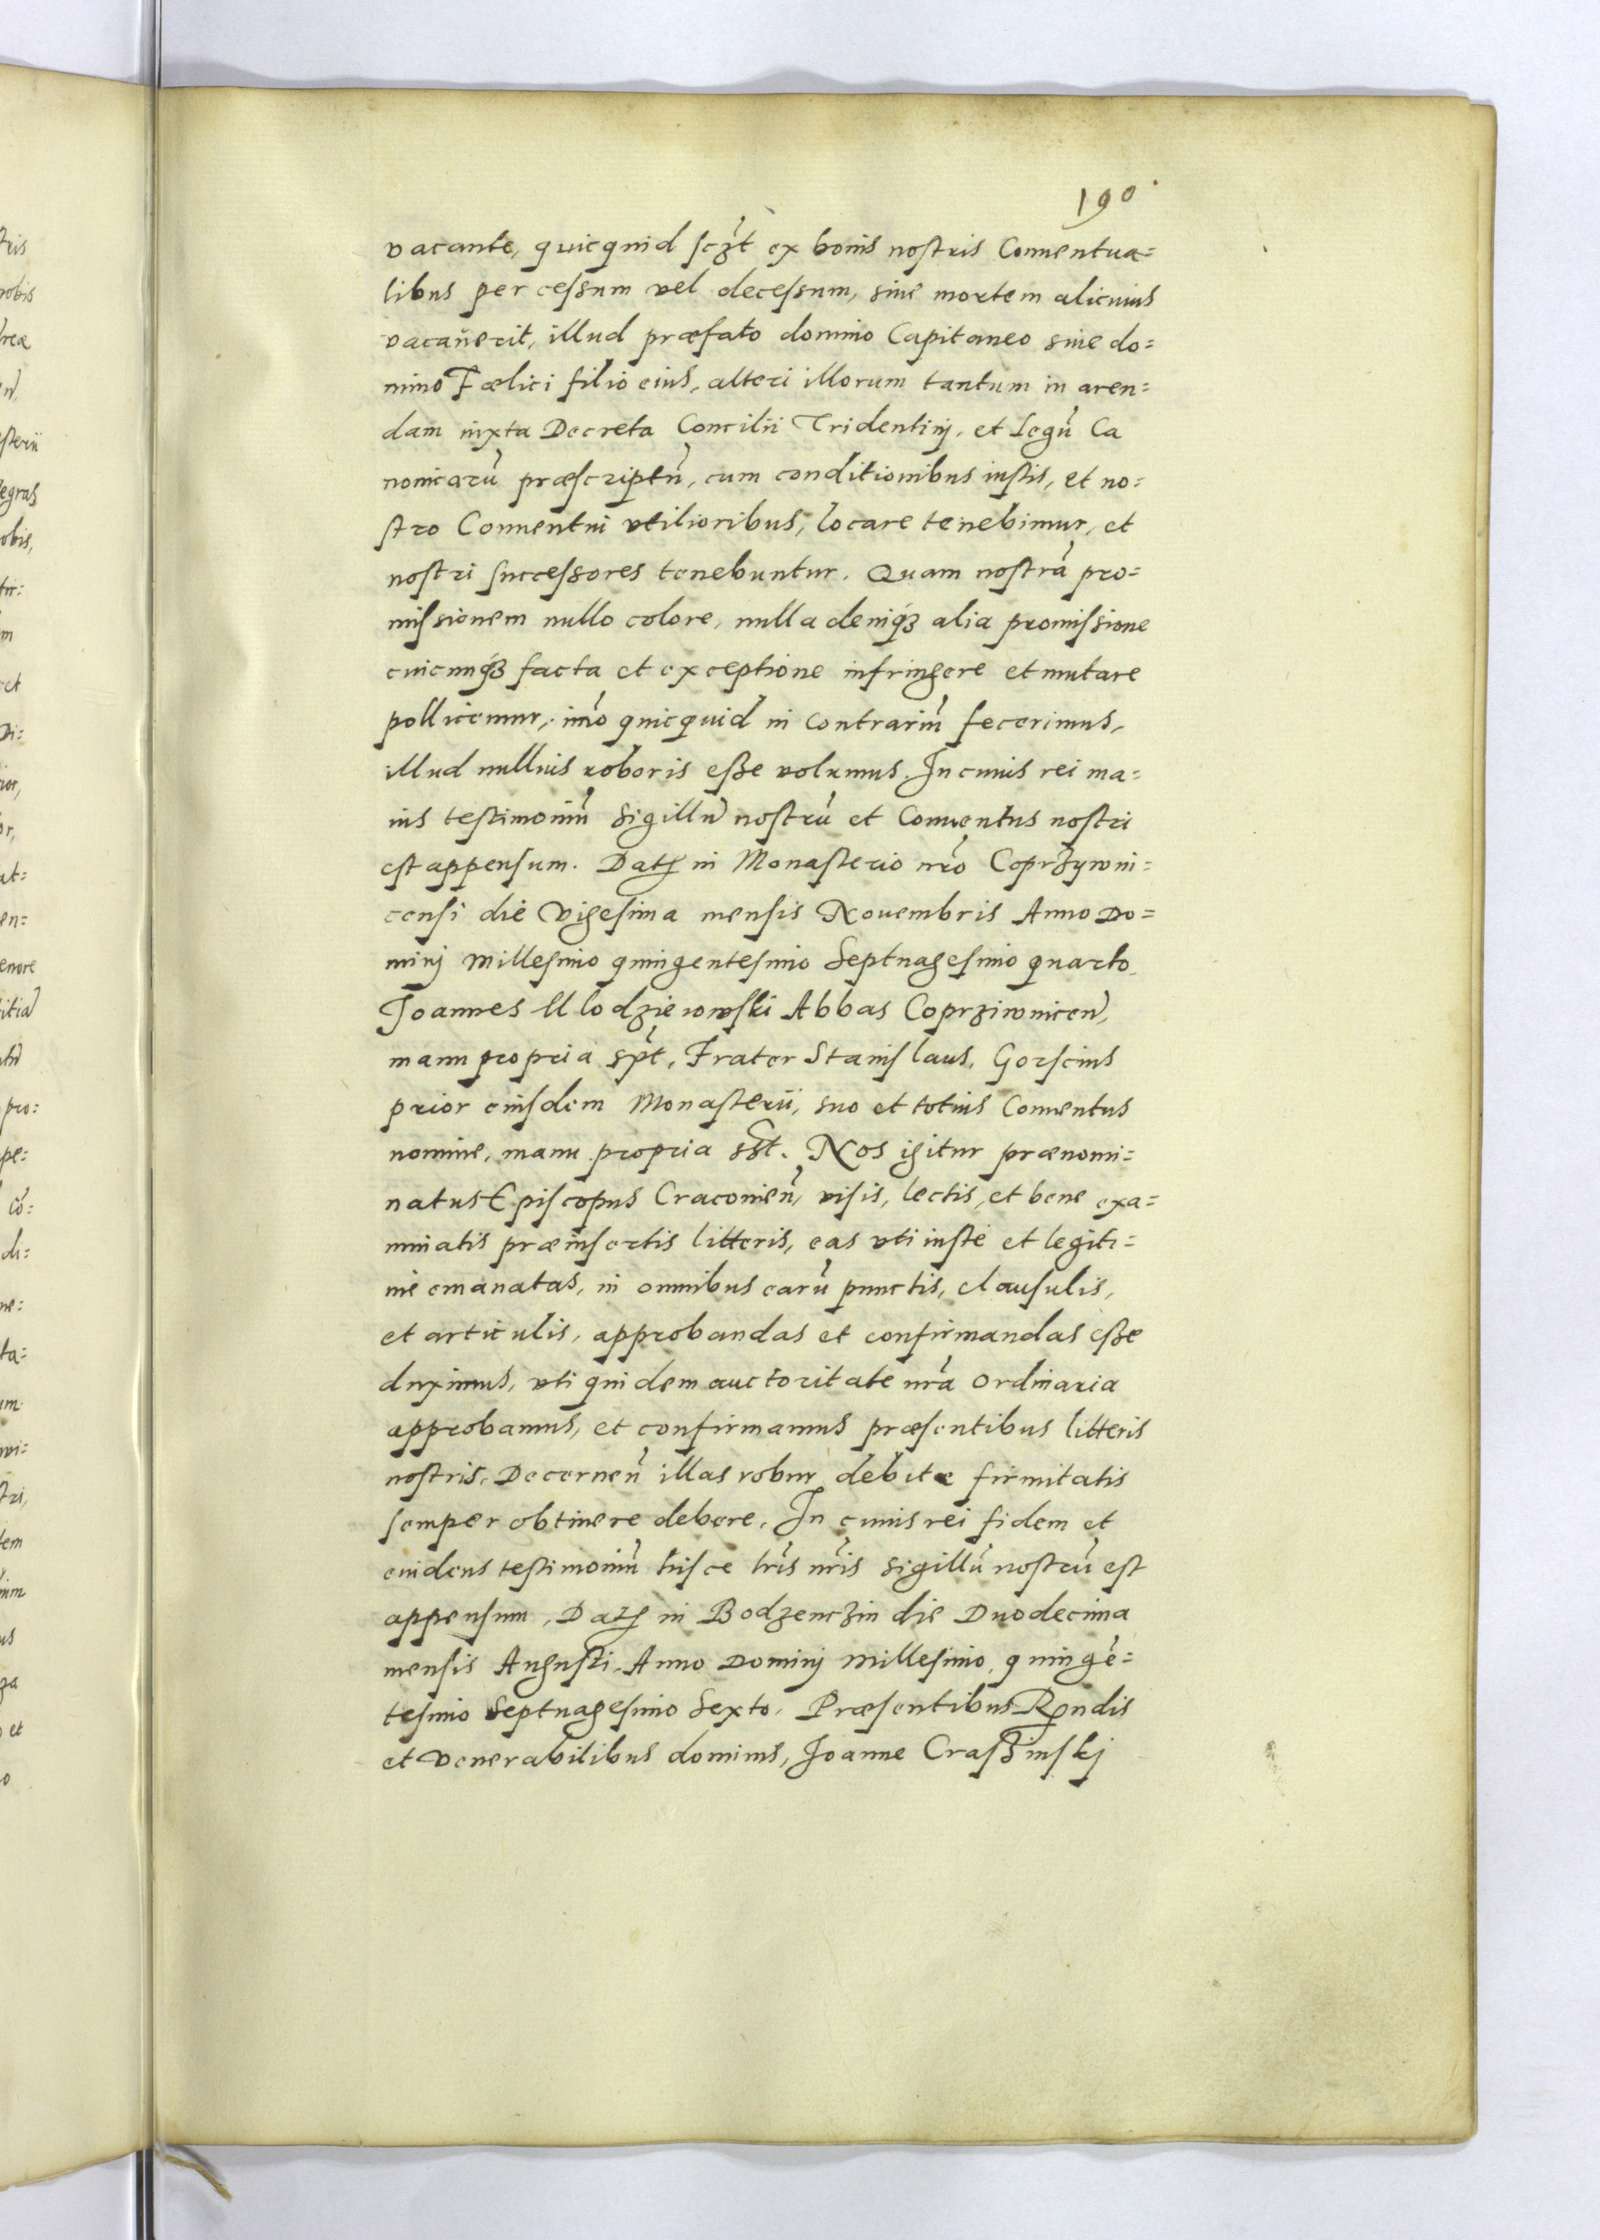 190
vacante, quicquid sczt ex bonis nostris Conuentua=
libus per cessum vel decessum, siue mortem alicuius
vacauerit, illud præfato domino Capitaneo siue do=
mino Fælici filio eius, alteri illorum tantum in aren=
dam iuxta Decreta Concilii Tridentinj, et Legũ Ca
nonicarũ præscriptũ, cum conditionibus iustis, et no=
stro Conuentui vtilioribus, locare tenebimur, et
nostri successores tenebuntur. Quam nostrã pro=
missionem nullo colore, nulla deniqȝ alia promissione
cuicunqȝ facta et exceptione infringere et mutare
pollicemur, imò quicquid in contrariũ fecerimus,
illud nullius roboris esse volumus. In cuius rei ma=
ius testimoniũ Sigillũ nostrũ et Conuentus nostri
est appensum. Datꝭ in Monasterio nr̃o Coprzywni=
censi die Vigesima mensis Nouembris Anno Do=
minj Millesimo quingentesimo Septuagesimo quarto,
Joannes Wlodziewowski Abbas Coprziwnicen̄,
manu propria sp̃t, Frater Stanislaus, Gorscius
prior eiusdem Monasterii, suo et totius Conuentus
nomine, manu propria sst. Nos igitur prænomi=
natus Episcopus Cracouien̄, visis, lectis, et bene exa=
minatis præinsertis litteris, eas vti iustè et legiti=
mè emanatas, in omnibus earũ punctis, clausulis,
et articulis, approbandas et confirmandas esse
duximus, vti quidem auctoritate nr̃a Ordinaria
approbamus, et confirmamus præsentibus litteris
nostris, Decernen̄ illas robur debitæ firmitatis
semper obtinere debere. In cuius rei fidem et
euidens testimoniũ hisce lr̃is nr̃is Sigillũ nostrũ est
appensum, Datꝭ in Bodzenczin die Duodecima
mensis Augusti, Anno Dominj Millesimo, quingē=
tesimo Septuagesimo Sexto. Præsentibus Rṇdis
et Venerabilibus dominis, Joanne Crassinskj